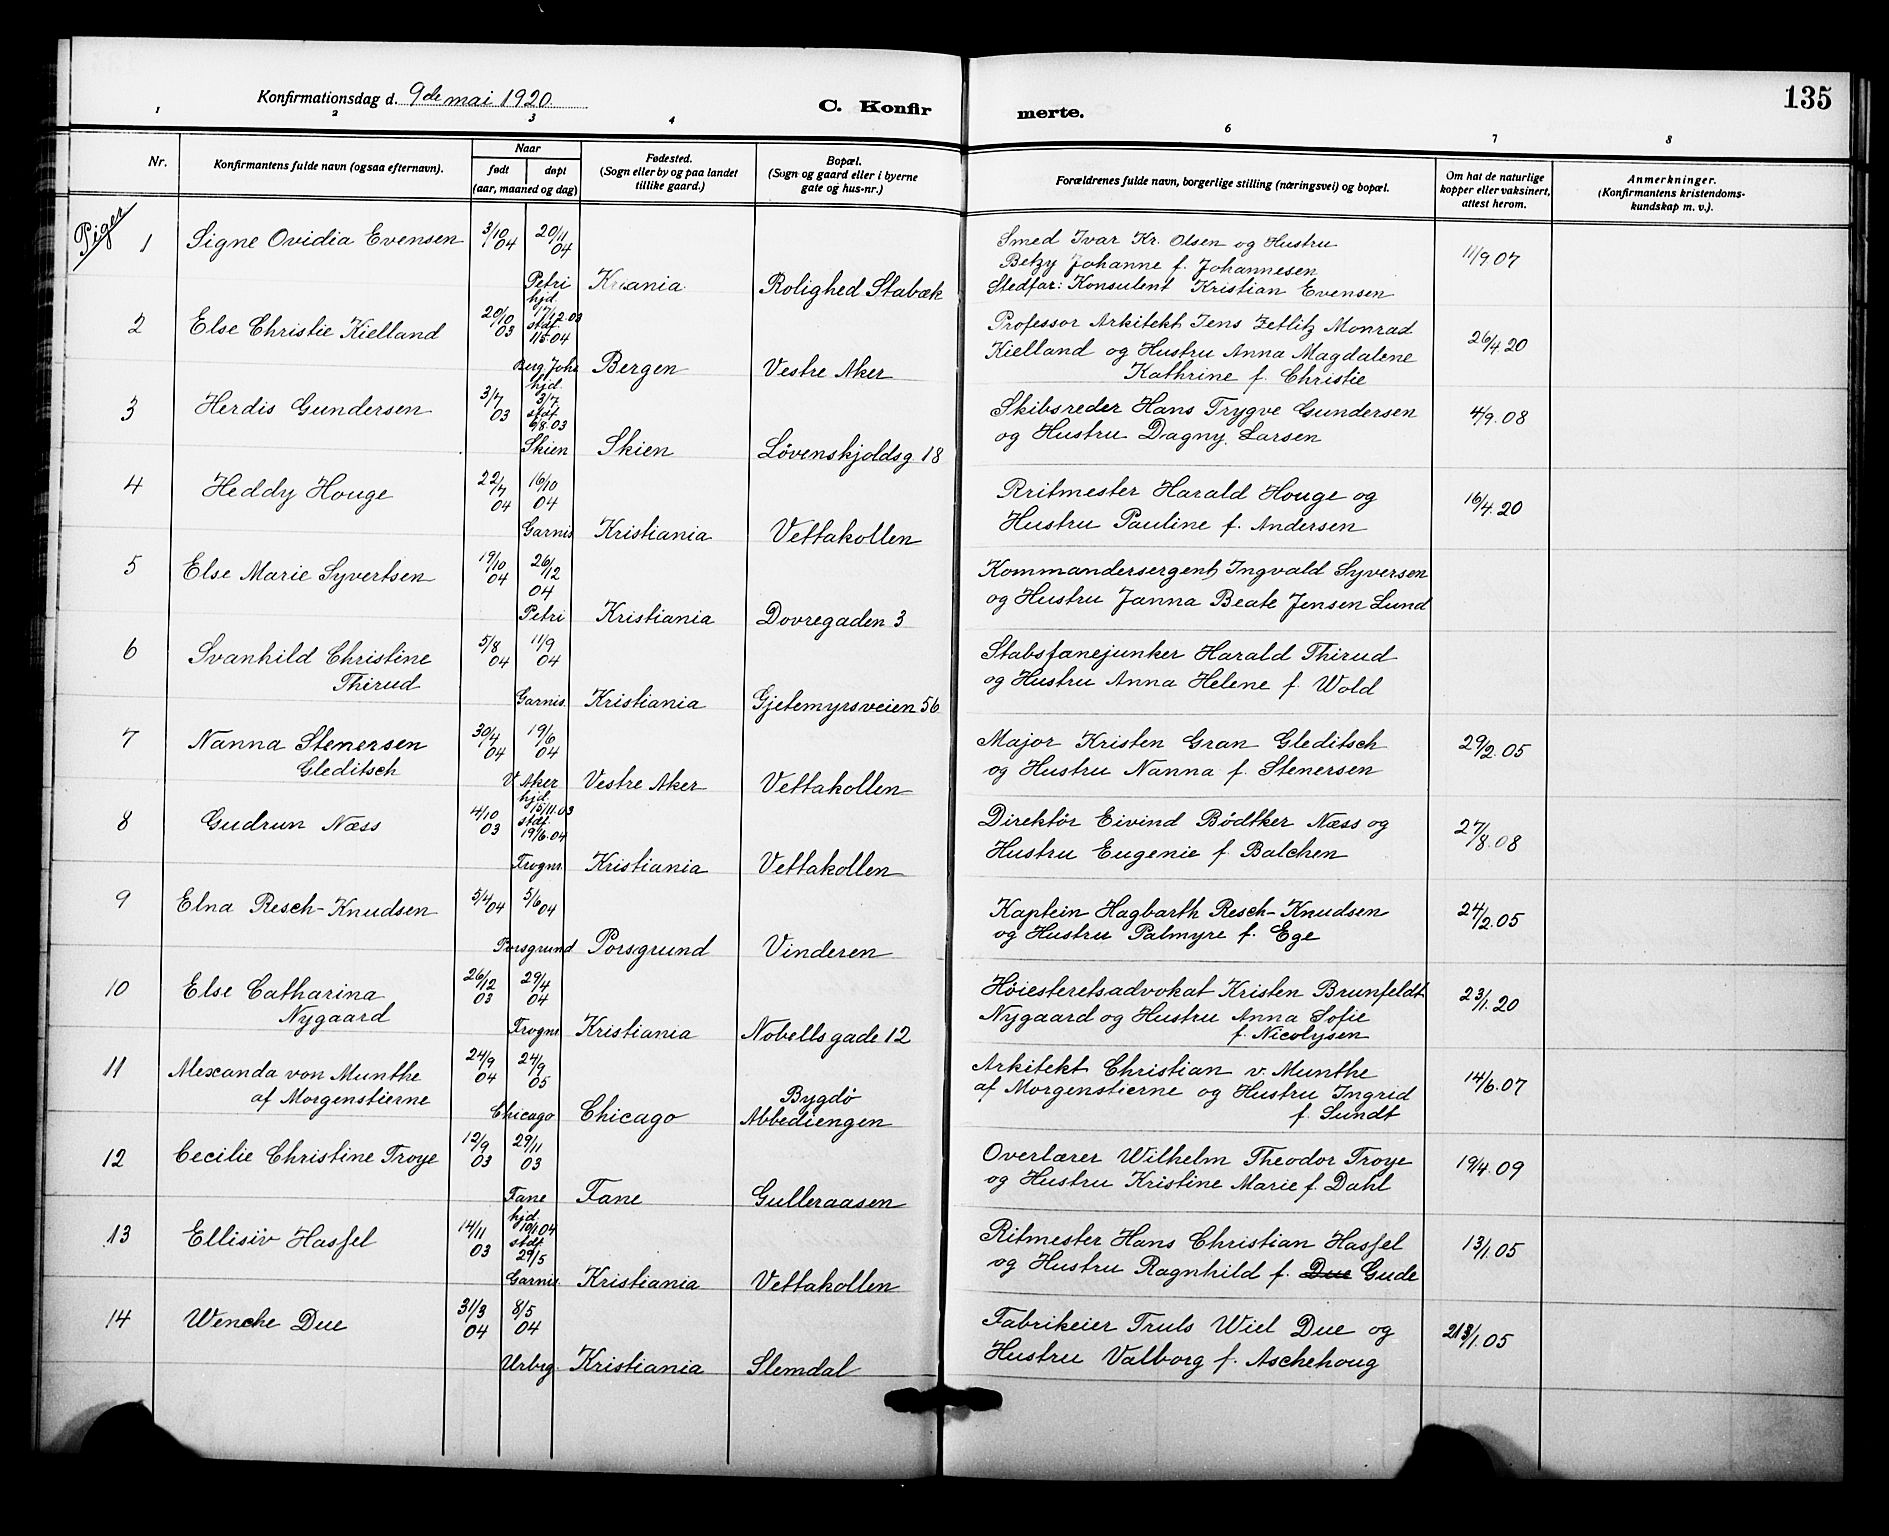 135
Konfirmationsdag d. 9de mai 1920.
C. Konfir merte.
1 2 3 4 6 7 8
Nr.
Konfirmantens fulde navn (ogsaa efternavn).
Naar
født døpt
(aar, maaned og dag)
Fødested.
(Sogn eller by og paa landet
tillike gaard.)
Bopæl.
(Sogn og gaard eller i byerne
gate og hus-nr.)
Forældrenes fulde navn, borgerlige stilling (næringsvei) og bopæl.
Om hat de naturlige
kopper eller vaksinert,
attest herom.
Anmerkninger.
(Konfirmantens kristendoms-
kundskap m. v.).
Piger
1 Signe Ovidia Evensen 3/10 04 20/11 04 Petri Kr.ania Rolighed Stabæk
Smed Ivar Kr. Olsen og Hustru
Betzy Johanne f. Johannesen
Stedfar: Konsulent Kristian Evensen
11/9 07
2 Else Christie Kielland 20/10 03 hjd. 17/12.03 stdf. 1/5.04 Berg Joh. Bergen Vestre Aker
Professor Arkitekt Jens Zetlitz Monrad
Kielland og Hustru Anna Magdalene
Kathrine f. Christie
26/4.20
3 Herdis Gundersen 3/7 03 hjd. 3/7 stdf. 9/8.03 Skien Skien Løvenskjoldsg. 18
Skibsreder Hans Trygve Gundersen
og Hustru Dagny Larsen
4/9.08
4 Heddy Houge 22/7 04 16/10 04 Garnis. Kristiania Vettakollen
Rritmester Harald Houge og
Hustru Pauline f. Andersen
16/4.20
5 Else Marie Syvertsen 19/10 04 26/12 04 Petri Kristiania Dovregaden 3
Kommandersergent Ingvald Syversen
og Hustru Janna Beate Jensen Lund
6 Svanhild Christine
Thirud 5/8 04 11/9 04 Garnis. Kristiania Gjetemyrsveien 56
Stabsfanejunker Harald Thirud
og Hustru Anna Helene f. Wold
7 Nanna Stenersen
Gleditsch 30/4 04 19/6 04 V Aker Vestre Aker Vettakollen
Major Kristen Gran Gleditsch
og Hustru Nanna f. Stenersen
29/2.05
8 Gudrun Næss 4/10 03 hjd. 15/11.03 stdf. 19/6.04 Trogns. Kristiania Vettakollen
Direktør Eivind Bødtker Næss og
Hustru Eugenie f. Balchen
27/8.08
9 Elna Resch-Knudsen 5/4 04 5/6 04 Porsgrund Porsgrund Vinderen
Kaptein Hagbarth Resch-Knudsen
og Hustru Palmyre f. Ege
24/2.05
10 Else Catharina
Nygaard 26/12 03 29/4 04 Trogns. Kristiania Nobells gade 12
Høiesteretsadvokat Kristen Brunfeldt
Nygaard og Hustru Anna Sofie
f. Nicolysen
23/1.20
11 Alexanda von Munthe
af Morgenstierne 24/9 04 24/9 05 Chicago Chicago Bygdø
Abbediengen
Arkitekt Christian v. Munthe
af Morgenstierne og Hustru Ingrid
f. Sundt
14/6.07
12 Cecilie Christine Troye 12/9 03 29/11 03 Fane Fane Gulleraasen
Overlærer Wilhelm Theodor Troye
og Hustru Kristine Marie f. Dahl
19/4.09
13 Ellisiv Hassel 14/11 03 hjd. 10/1 04 stdf. 29/5 Garnis. Kristiania Vettakollen
Ritmester Hans Christian Hassel
og Hustru Ragnhild f. Due Gude
13/1.05
14 Wenche Due 31/3 04 8/5 04 Urbrg. Kristiania Slemdal
Fabrikeier Truls Wiel Due og
Hustru Valborg f. Aschehoug